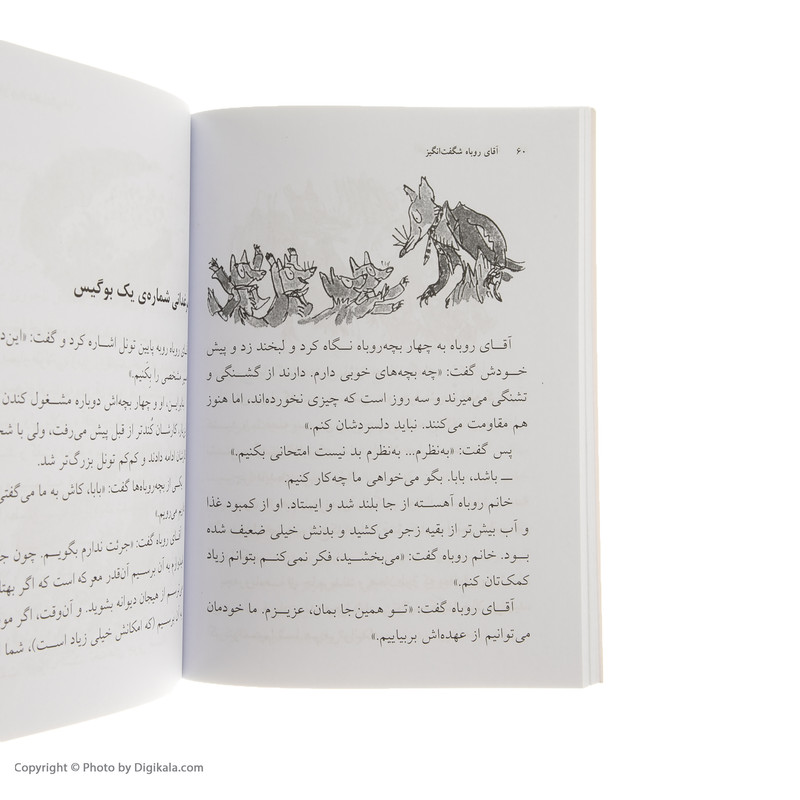 ۶۰ آقای روباه شگفت‌انگیز
آقـای روباه به چهار بچه‌روباه نـگاه کرد و لبخند زد و پیش
خـودش گفت: «چه بچه‌های خوبی دارم. دارند از گشـنگی و
تشنگی می‌میرند و سه روز است که چیزی نخورده‌اند، اما هنوز
هم مقاومت می‌کنند. نباید دلسردشان کنم.»
پس گفت: «به‌نظرم... به‌نظرم بد نیست امتحانی بکنیم.»
ـــ باشد، بابا. بگو می‌خواهی ما چه‌کار کنیم.
خانم روباه آهسته از جا بلند شد و ایستاد. او از کمبود غذا
و آب بیش‌تر از بقیه زجر می‌کشید و بدنش خیلی ضعیف شده
بود. خانم روباه گفت: «می‌بخشید، فکر نمی‌کنم بتوانم زیاد
کمک‌تان کنم.»
آقـای روباه گفت: «تـو همین‌جا بمان، عزیـزم. ما خودمان
می‌توانیم از عهده‌اش بربیاییم.»
شماره‌ی یک بوگیس
روباه روبه پایین تونل اشاره کرد و گفت: «این‌د
شخصی را بکنیم.»
او و چهار بچه‌اش دوباره مشـغول کندن
کارشـان کُندتر از قبل پیش می‌رفت، ولی با شج
ادامه دادند و کم‌کم تونل بزرگ‌تر شد.
از بچه‌روباه‌ها گفت: «بابا، کاش به ما می‌گفتی
می‌رویم.»
روباه گفت: «جرئت ندارم بگویـم. چون ج
به آن برسیم آن‌قدر که است که اگر بهتا
از هیجان دیوانه بشوید. و آن‌وقت، اگر
(که امکانش خیلی زیاد است)، شما
Copyright © Photo by Digikala.com